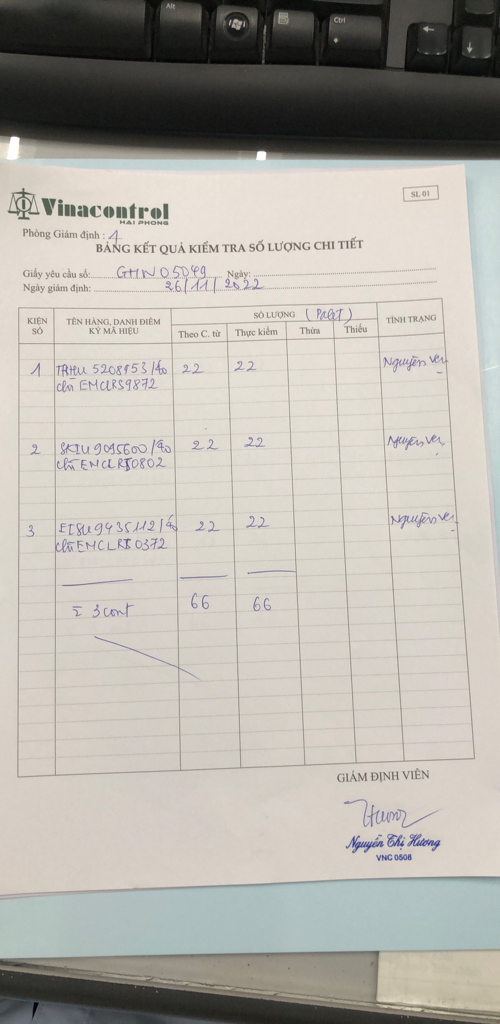 Alt
Ctrl
Vinacontrol
HAI PHONG
SL 01
Phòng Giám định : 1
BẢNG KẾT QUẢ KIỂM TRA SỐ LƯỢNG CHI TIẾT
Giấy yêu cầu số: GHN05049 Ngày:
Ngày giám định: 26/11/2022
KIỆN SỐ
TÊN HÀNG, DANH ĐIỂM KÝ MÃ HIỆU
SỐ LƯỢNG (Palet)
TÌNH TRẠNG
Theo C. từ Thực kiểm Thừa Thiếu
1 TRHU 5208953/40 22 22 Nguyên vẹn
chì EMCLRS9872
2 SKIU 9095600/40 22 22 Nguyên vẹn
chì EMCLRI0802
3 EISU 9435112/40 22 22 Nguyên vẹn
chì EMCLRI0372
Σ 3 cont 66 66
GIÁM ĐỊNH VIÊN
Hương
Nguyễn Thị Hương
VNC 0508